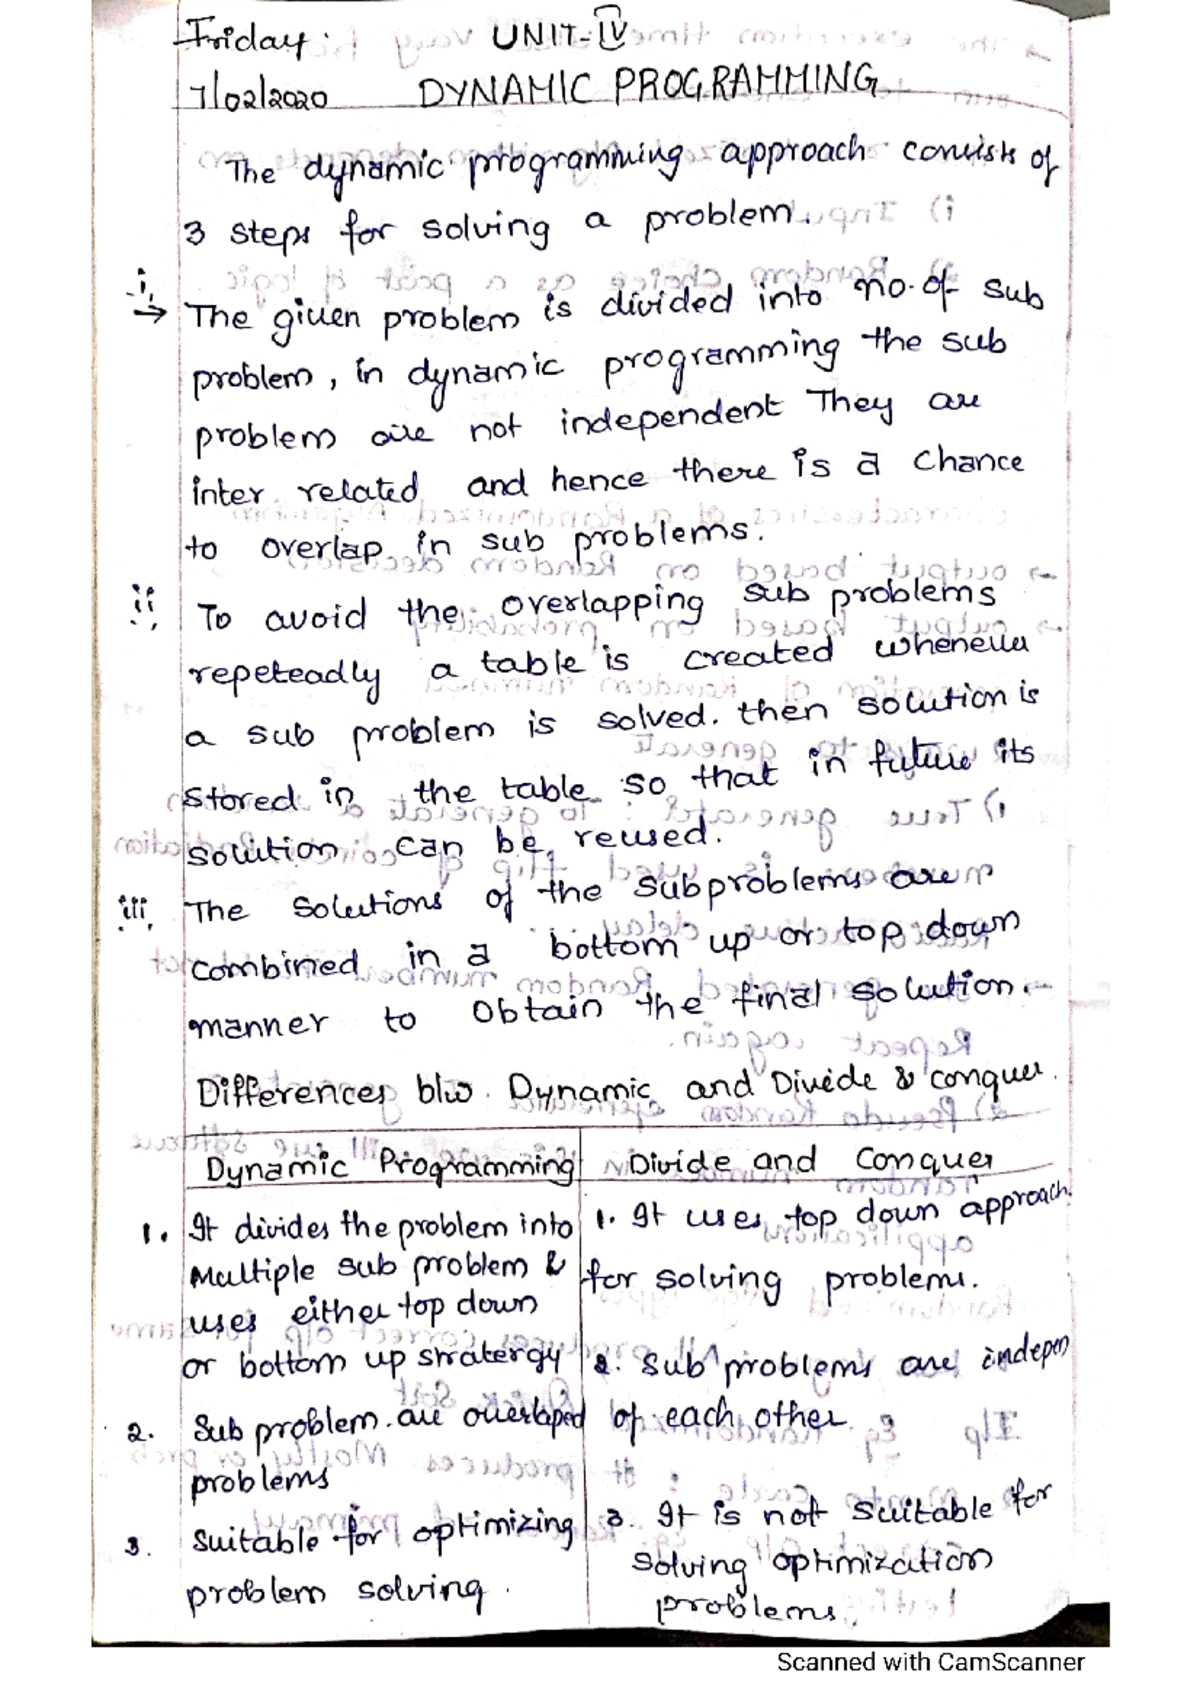 Friday.
UNIT-IV
7/02/2020
DYNAMIC PROGRAMMING
The dynamic programming approach consists of
3 steps for solving a problem.
i,
→ The given problem is divided into no. of sub
problem, in dynamic programming the sub
problem are not independent They are
inter related and hence there is a chance
to overlap in sub problems.
ii, To avoid the overlapping sub problems
repeteadly a table is created whenever
a sub problem is solved. then solution is
stored in the table so that in future its
solution can be reused.
iii, The solutions of the subproblems are
combined in a bottom up or top down
manner to obtain the final solution.
Differences b/w Dynamic and Divide & conquer.
Dynamic Programming
1. It divides the problem into
Multiple sub problem &
uses either top down
or bottom up stratergy
2. Sub problem are overlaped
problems
3. Suitable for optimizing
problem solving.
Divide and Conquer
1. It uses top down approach
for solving problems.
2. Sub problems are indepen
of each other.
3. It is not suitable for
solving optimization
problems.
Scanned with CamScanner